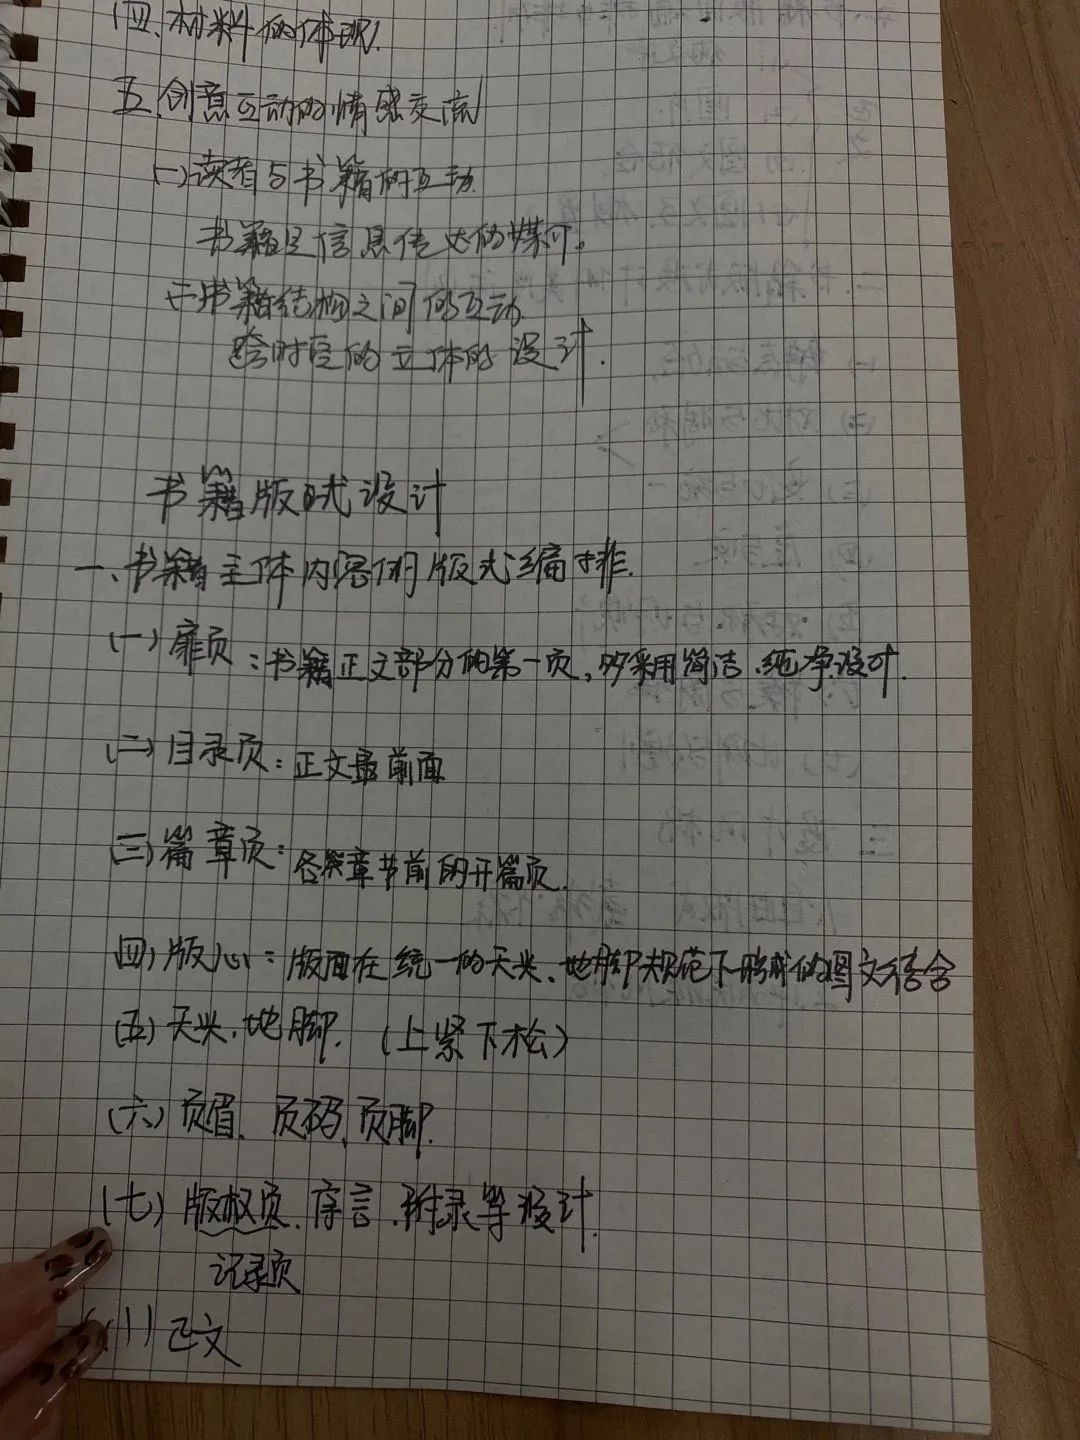 (四、材料的体现.
五.创意互动的情感交流
(一)读者与书籍的互动.
书籍是信息传达的媒介。
(二)书籍结构之间的互动.
跨时空的立体的设计.
书籍版式设计
一、书籍主体内容们版式编排.
(一)扉页:书籍正文部分的第一页,多采用简洁.纯净设计.
(二)目录页:正文最前面
(三)篇章页:各类章节前的开篇页.
四)版心:版面在统一的天头、地脚规范下形成的图文结合
(五)天头.地脚.(上紧下松)
(六)页眉、页码、页脚.
(七)版权页、序言、附录等设计.
记录页
(八)正文